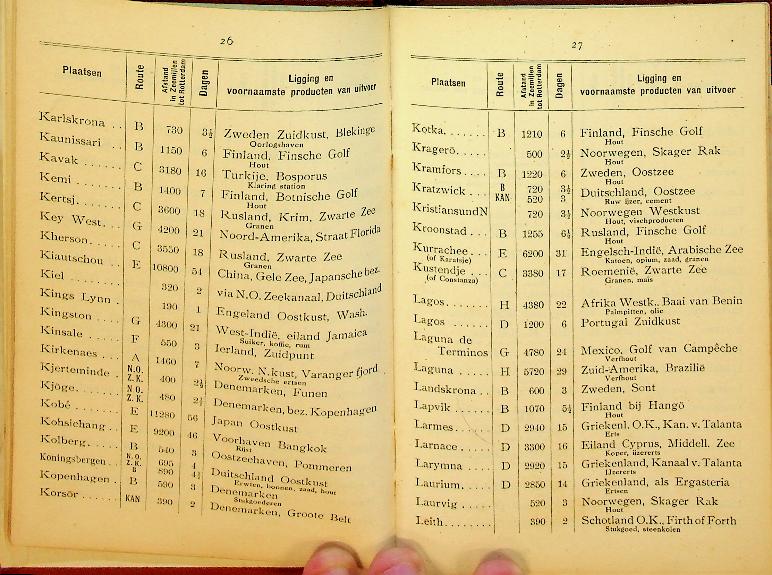 26
Plaatsen Route Afstand in Zeemijlen tot Rotterdam Dagen Ligging en voornaamste producten van uitvoer
Karlskrona . . B 730 3½ Zweden Zuidkust, Blekinge
Oorlogshaven
Kaunissari . . B 1150 6 Finland, Finsche Golf
Hout
Kavak . . . . . . C 3180 16 Turkije, Bosporus
Klaring station
Kemi . . . . . . . B 1400 7 Finland, Botnische Golf
Hout
Kertsj. . . . . . . C 3600 18 Rusland, Krim, Zwarte Zee
Granen
Key West. . . . G 4200 21 Noord-Amerika, Straat Florida
Kherson. . . . . C 3550 18 Rusland, Zwarte Zee
Granen
Kiautschou . . E 10800 54 China, Gele Zee, Japansche bez.
Kiel . . . . . . . . 320 2 via N.O. Zeekanaal, Duitschland
Kings Lynn . 190 1 Engeland Oostkust, Wash.
Kingston . . . . G 4300 21 West-Indië, eiland Jamaica
Suiker, koffie, rum
Kinsale . . . . . F 550 3 Ierland, Zuidpunt
Kirkenaes . . . A 1460 7 Noorw. N.kust, Varanger fjord .
Zweedsche ertsen
Kjerteminde . N.O. Z.K. 400 2½ Denemarken, Funen
Kjöge. . . . . . . N.O. Z.K. 480 2½ Denemarken, bez. Kopenhagen
Kobé . . . . . . . E 11280 56 Japan Oostkust
Kohsichang . . E 9200 46 Voorhaven Bangkok
Rijst
Kolberg. . . . . B 540 3 Oostzeehaven, Pommeren
Koningsbergen . N.O. Z.K. B 695 890 4 4½ Duitschland Oostkust
Erwten, boonen, zaad, hout
Kopenhagen . B 590 3 Denemarken
Stukgoederen
Korsör . . . . . . KAN 390 2 Denemarken, Groote Belt
27
Plaatsen Route Afstand in Zeemijlen tot Rotterdam Dagen Ligging en voornaamste producten van uitvoer
Kotka. . . . . . . B 1210 6 Finland, Finsche Golf
Hout
Kragerö. . . . . 500 2½ Noorwegen, Skager Rak
Hout
Kramfors . . . . B 1220 6 Zweden, Oostzee
Hout
Kratzwick . . . B KAN 720 520 3½ 3 Duitschland, Oostzee
Ruw ijzer, cement
KristiansundN 720 3½ Noorwegen Westkust
Hout, vischproducten
Kroonstad . . . B 1255 6½ Rusland, Finsche Golf
Hout
Kurrachee . . . E 6200 31 Engelsch-Indië, Arabische Zee
(of Karatsje) Katoen, opium, zaad, granen
Kustendje . . . C 3380 17 Roemenië, Zwarte Zee
(of Constanza) Granen, maïs
Lagos. . . . . . . H 4380 22 Afrika Westk., Baai van Benin
Palmpitten, olie
Lagos . . . . . . D 1200 6 Portugal Zuidkust
Laguna de
Terminos G 4780 24 Mexico, Golf van Campêche
Verfhout
Laguna . . . . . H 5720 29 Zuid-Amerika, Brazilië
Verfhout
Landskrona . . B 600 3 Zweden, Sont
Lapvik . . . . . . B 1070 5½ Finland bij Hangö
Hout
Larmes. . . . . . D 2940 15 Griekenl. O.K., Kan. v. Talanta
Erts
Larnace . . . . . D 3300 16 Eiland Cyprus, Middell. Zee
Koper, ijzererts
Larymna . . . . D 2920 15 Griekenland, Kanaal v. Talanta
IJzererts
Laurium. . . . . D 2850 14 Griekenland, als Ergasteria
Ertsen
Laurvig . . . . . 520 3 Noorwegen, Skager Rak
Hout
Leith. . . . . . . . 390 2 Schotland O.K., Firth of Forth
Stukgoed, steenkolen